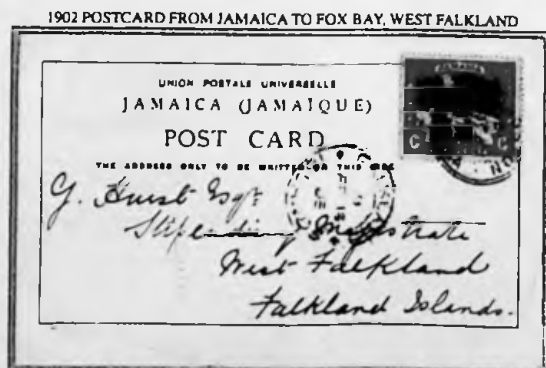 1902 POSTCARD FROM JAMAICA TO FOX BAY, WEST FALKLAND
UNION POSTALE UNIVERSELLE
JAMAICA (JAMAÏQUE)
POST CARD
THE ADDRESS ONLY TO BE WRITTEN ON THIS SIDE
JAMAICA
G. Hurst Esqr
Magistrate
West Falkland
Falkland Islands.